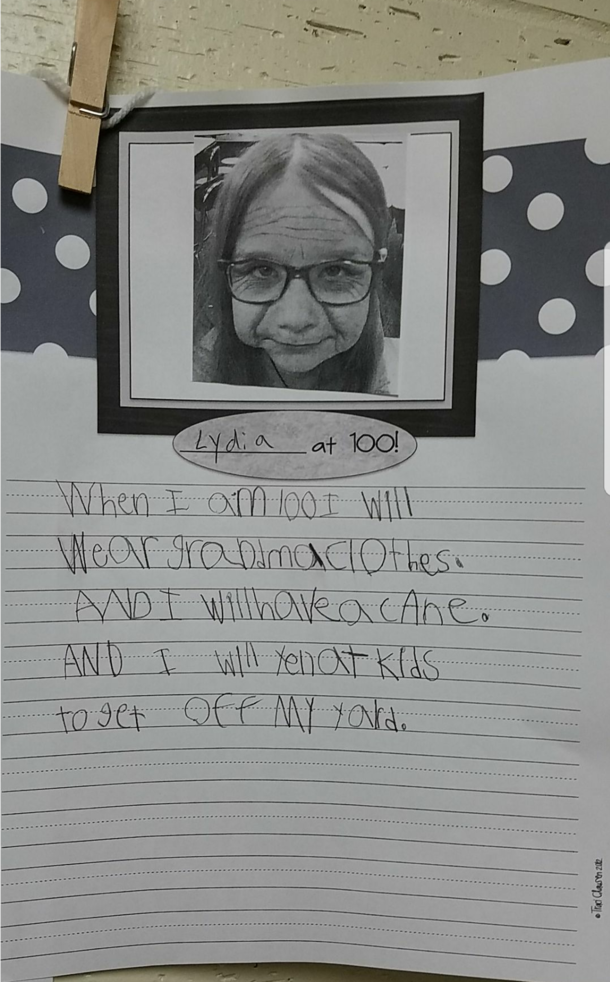 Lydia at 100!
When I am 100 I will
Wear grandma clothes.
AND I will have a cAne.
AND I will yen at kids
to get OFF MY yard.